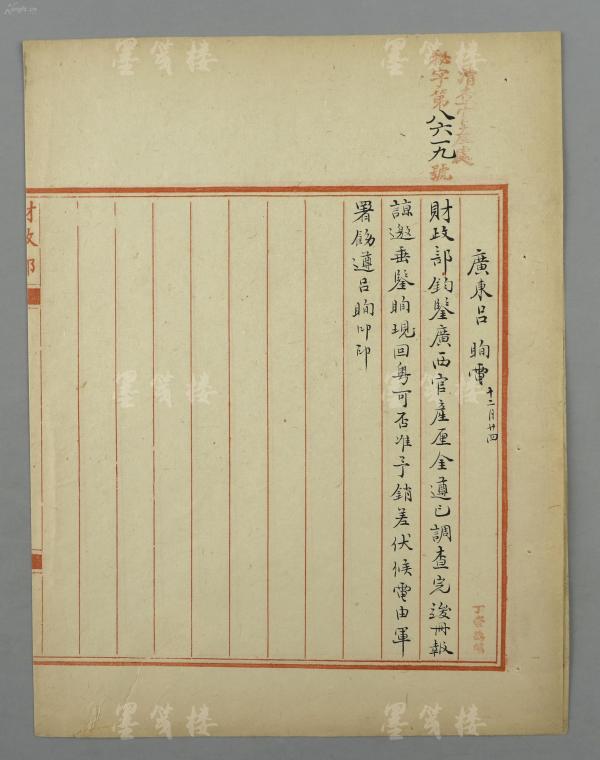 清查官產處
秘字第八六一九號
廣東呂駒電 十二月廿四
財政部鈞鑒廣西官產厘金遵已調查完竣冊報
諒邀垂鑒駒現回粵可否准予銷差伏候電由軍
署飭遵呂駒叩印
財政部
墨笺楼
墨笺楼
墨笺楼
墨笺楼
墨笺楼
墨笺楼